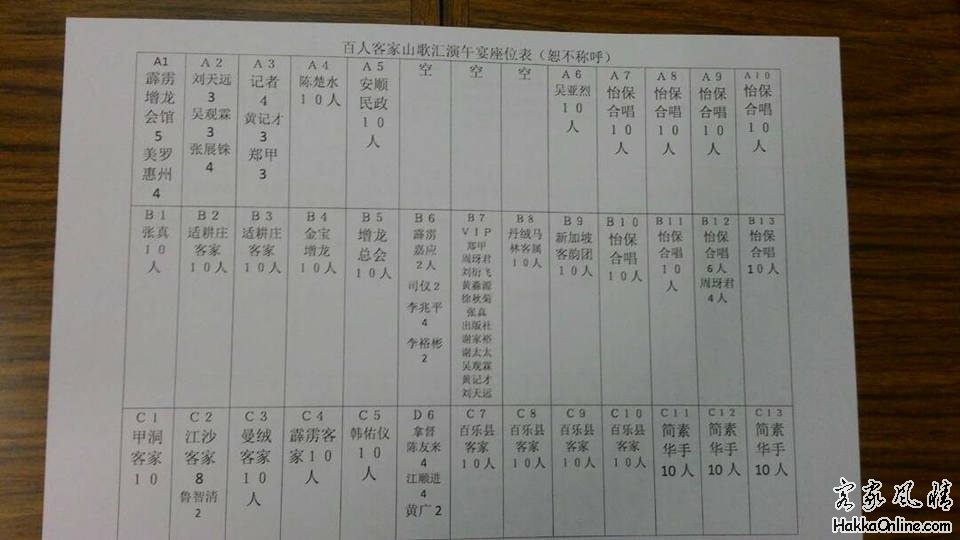 百人客家山歌汇演午宴座位表（恕不称呼）
A1
霹雳
增龙
会馆
5
美罗
惠州
4
A 2
刘天远
3
吴观霖
3
张展铢
4
A 3
记者
4
黄记才
3
郑甲
3
A 4
陈楚水
10人
A 5
安顺
民政
10
人
空
空
空
A 6
吴亚烈
10
人
A 7
怡保
合唱
10
人
A 8
怡保
合唱
10
人
A 9
怡保
合唱
10
人
A 10
怡保
合唱
10
人
B 1
张真
10
人
B 2
适耕庄
客家
10人
B 3
适耕庄
客家
10人
B 4
金宝
增龙
10人
B 5
增龙
总会
10人
B 6
霹雳
嘉应
2人
司仪 2
李兆平
4
李裕彬
2
B 7
VIP
郑甲
周玡君
刘衍飞
黄淼源
徐秋菊
张真
出版社
谢家裕
谢太太
吴观霖
黄记才
刘天远
B 8
丹绒马
林客属
10人
B 9
新加坡
客韵团
10人
B 10
怡保
合唱
10人
B 11
怡保
合唱
10
人
B 12
怡保
合唱
6人
周玡君
4人
B 13
怡保
合唱
10人
C 1
甲洞
客家
10
C 2
江沙
客家
8
鲁智清
2
C 3
曼绒
客家
10
人
C 4
霹雳客
家10
人
C 5
韩佑仪
10
人
D 6
拿督
陈友来
4
江顺进
4
黄广 2
C 7
百乐县
客家
10人
C 8
百乐县
客家
10人
C 9
百乐县
客家
10人
C 10
百乐县
客家
10人
C 11
简素
华手
10人
C 12
简素
华手
10人
C 13
简素
华手
10人
客家风情
HakkaOnline.com